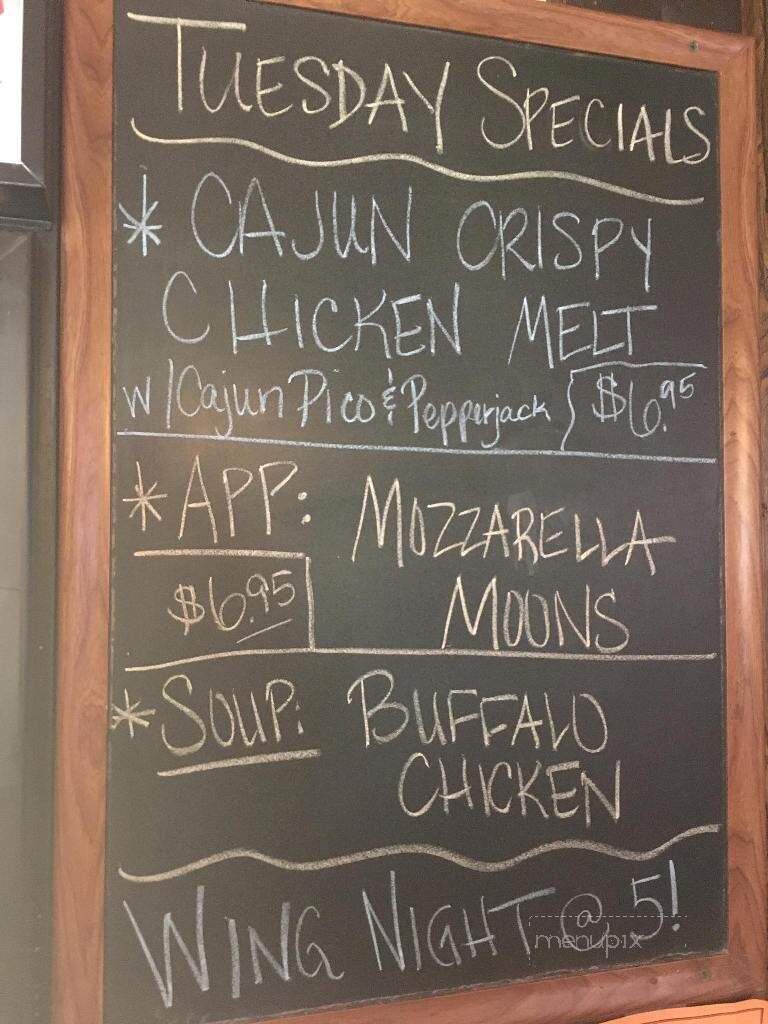 TUESDAY SPECIALS
* CAJUN CRISPY
CHICKEN MELT
w/Cajun Pico & Pepperjack $6.95
* APP: MOZZARELLA
$6.95 MOONS
* SOUP: BUFFALO
CHICKEN
WING NIGHT @ 5!
menupix